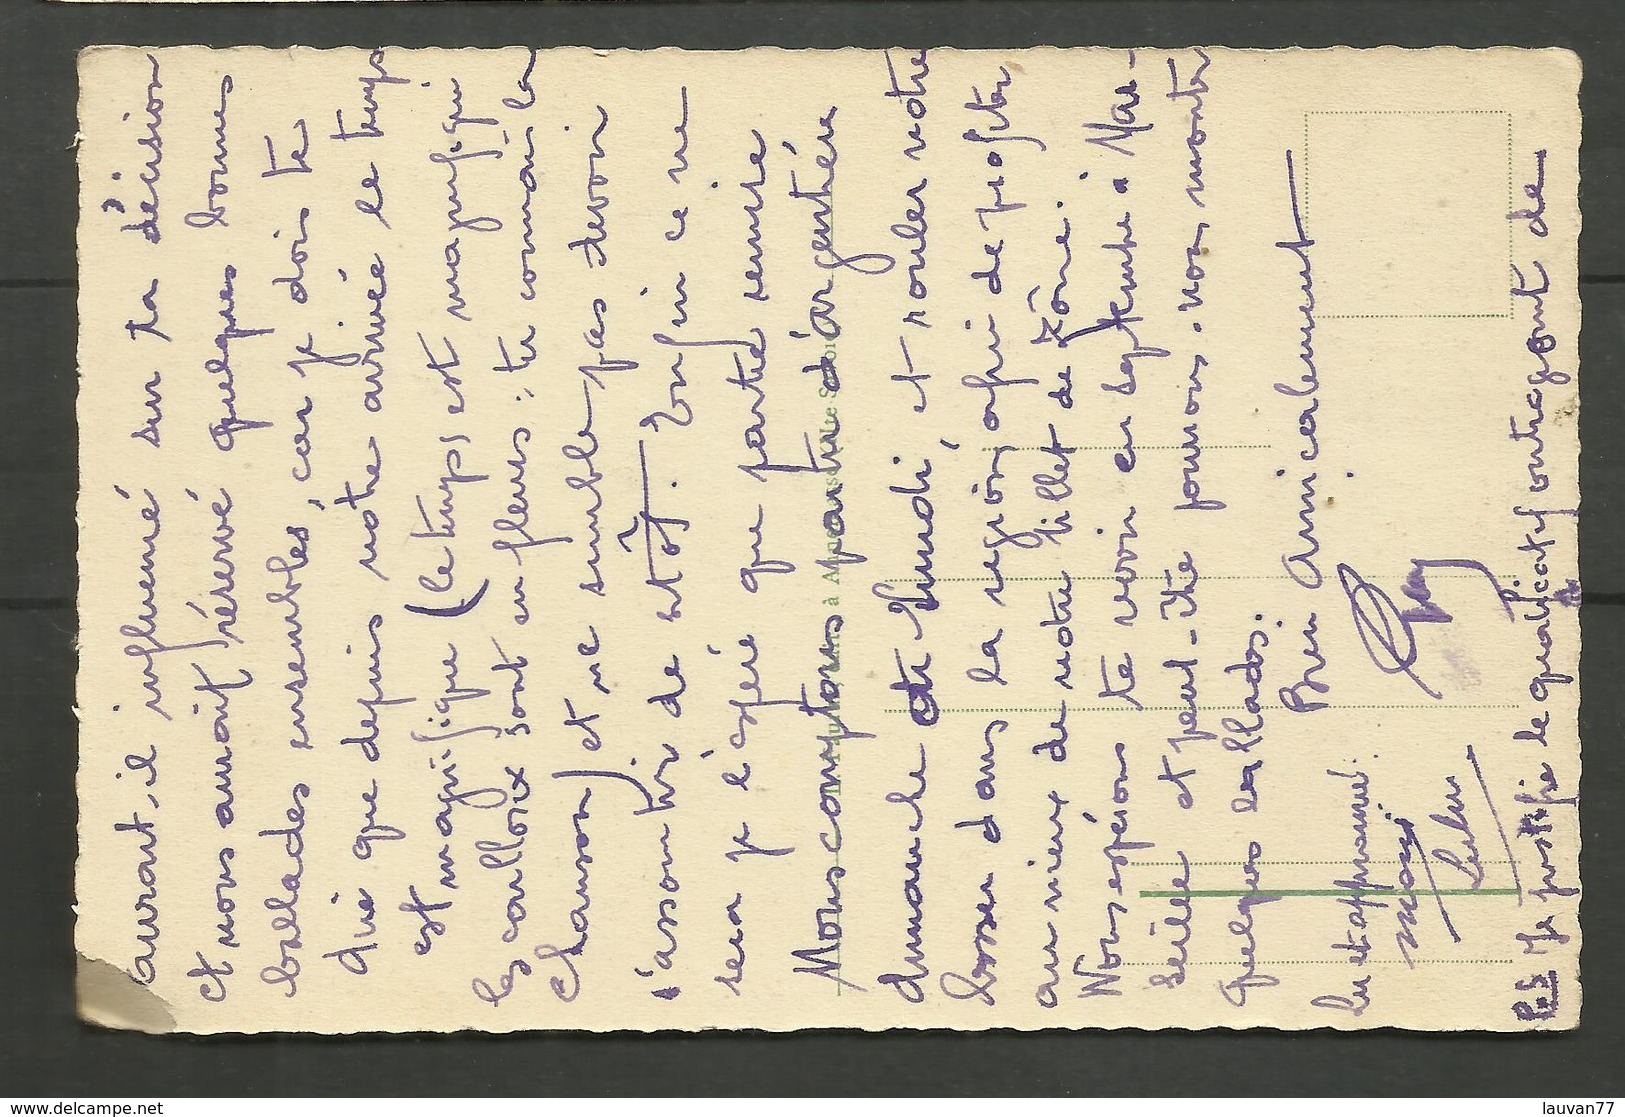 auront-il influencé sur ta décision
et nous aurait réservé quelques bonnes
ballades ensembles, car je dois te
dire que depuis notre arrivée le temps
est magnifique (le temps est magnifique
les cailloix sont en fleurs : tu connais la
chanson) et ne semble pas devoir
s'assombrir de sitôt. Enfin ce ne
sera je l'espère que partie remise
Nous comptons partir d'Argentière
dimanche ou lundi, et rouler notre
bosse dans la région afin de profiter
au mieux de notre billet de Zône.
Nous espérons te revoir en septembre à Mar-
seille et peut-être pourrons-nous monter
quelques ballades.
Bien Amicalement
Guy
Lu et approuvé :
P.S Je justifie le qualificatif outrageant de
lauvan77
www.delcampe.net